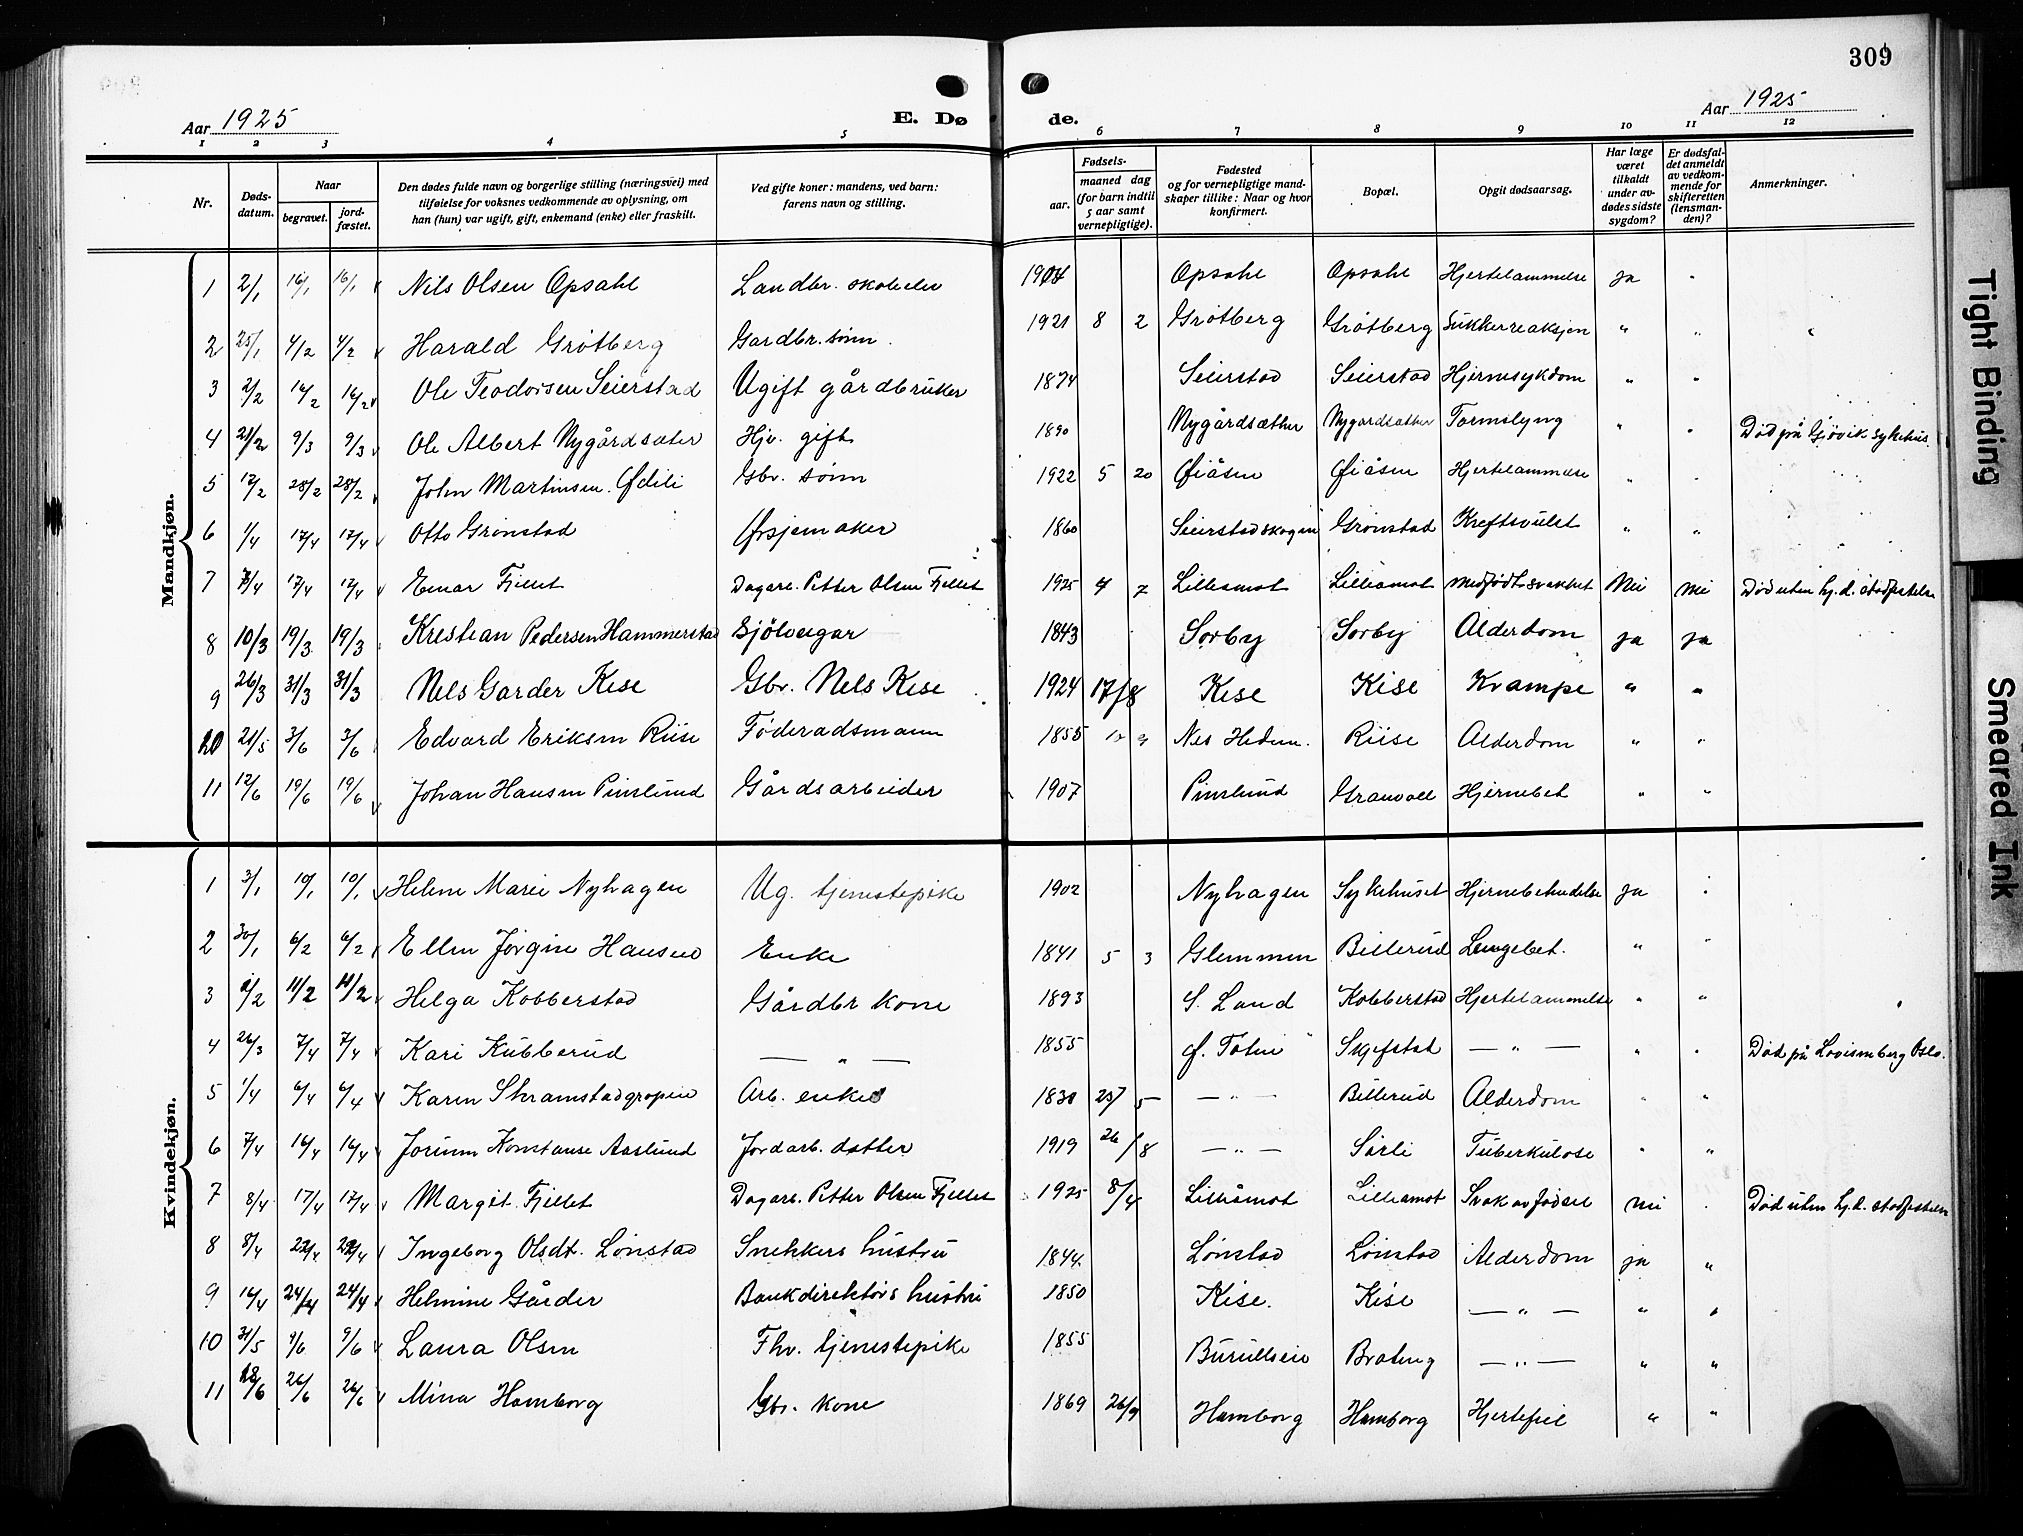 309
Aar 1925
E. Dø de.
Aar 1925
1 2 3 4 5 6 7 8 9 10 11 12
Nr.
Døds-
datum.
Naar
begravet.
jord-
fæstet.
Den dødes fulde navn og borgerlige stilling (næringsvei) med
tilføielse for voksnes vedkommende av oplysning, om
han (hun) var ugift, gift, enkemand (enke) eller fraskilt.
Ved gifte koner: mandens, ved barn:
farens navn og stilling.
Fødsels-
aar.
maaned dag
(for barn indtil
5 aar samt
vernepligtige).
Fødested
og for vernepligtige mand-
skaper tillike: Naar og hvor
konfirmert.
Bopæl.
Opgit dødsaarsag.
Har læge
været
tilkaldt
under av-
dødes sidste
sygdom?
Er dødsfal-
det anmeldt
av vedkom-
mende for
skifteretten
(lensman-
den)?
Anmerkninger.
Mandkjøn.
1 2/1 16/1 16/1 Nils Olsen Opsahl Landbr. skoleelev 1904 Opsahl Opsahl Hjertelammelse ja "
2 25/1 4/2 4/2 Harald Grötberg Gardbr. sönn. 1921 8 2 Grötberg Grötberg Sukkerreaksjon " "
3 2/2 16/2 16/2 Ole Teodorsen Seierstad Ugift gårdbruker 1874 Seierstad Seierstad Hjernesykdom " "
4 21/2 9/3 9/3 Ole Albert Nygårdsæter Hjv. gift 1890 Nygårdsæther Nygardsæther Tarmslyng " " Död på Gjövik sykehus.
5 17/2 28/2 28/2 John Martinsen Gbr. sönn 1922 5 20 Öiåsen Öiåsen Hjertelammelse " "
6 1/4 17/4 17/4 Otto Grönstad 1860 Seierstadskogen Grönstad Kreftsvulst " "
7 17/4 17/4 Einar Fjellet Dagarb. Petter Olsen Fjellet 1925 4 7 Lilleåmot Lilleåmot medfödt svakhet Nei nei Död uten hj.d. stadfestelse
8 10/3 19/3 19/3 Kristian Pedersen Hammerstad Sjölveigar 1843 Sorby Sorby Alderdom ja ja
9 26/3 31/3 31/3 Nels Garder Kise Gbr. Nels Kise 1924 17/8 Kise Kise Krampe " "
10 21/5 3/6 3/6 Edvard Eriksen Riise Föderadsmann 1855 Nes Hedm. Riise Alderdom " "
11 12/6 19/6 19/6 Johan Hansen Pinslund Gårdsarbeider 1907 Pinslund Granvoll Hjernebet " "
Kvindekjøn.
1 3/1 10/1 10/1 Helene Marie Nyhagen Ug. tjenestepike 1902 Nyhagen Sykehuset Hjernebetendelse ja "
2 30/1 6/2 6/2 Ellen Jörgine Hansen Enke 1841 5 3 Glemmen Billerud Lungebet. " "
3 2/2 11/2 11/2 Helga Kobberstad Gårdbr kone 1893 S. Land Kobberstad Hjertelammelse " "
4 26/3 7/4 7/4 Kari Kubberud — " — 1855 Ö. Toten Skjefstad — " — " " Död på Lovisenberg Oslo.
5 1/4 6/4 6/4 Karen Skramstadgropen Arb. enke 1830 25/ 5 — " — Billerud Alderdom " "
6 7/4 16/4 16/4 Jorunn Konstanse Aaslund Jordarb. datter 1919 26/8 — " — Sörli Tuberkulose " "
7 8/4 17/4 17/4 Margit Fjellet Dagarb. Petter Olsen Fjellet 1925 8/4 Lilleåmot Lilleåmot Svak av födsel nei . Död uten hj.d. stadfestelse
8 8/4 22/4 22/4 Ingeborg Olsdt. Lönstad Snekkers hustru 1844 Lönstad Lönstad Alderdom ja "
9 16/4 24/4 24/4 Helmine Gårder Bankdirektörs hustru 1850 Kise. Kise — " — " "
10 31/5 9/6 9/6 Laura Olsen Fhv. tjenestepike 1855 Burulleie Brateng — " — " "
11 18/6 26/6 26/6 Mina Homborg Gbr. kone 1869 26/9 Homborg Homborg Hjertefeil " "
Tight Binding
Smeared Ink